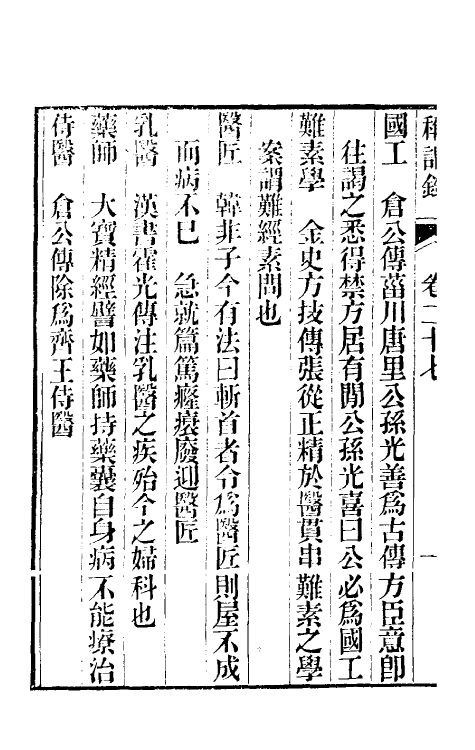 稱謂錄 卷二十七 一
國工 倉公傳菑川唐里公孫光善爲古傳方臣意卽
往謁之悉得禁方居有閒公孫光喜曰公必爲國工
難素學 金史方技傳張從正精於醫貫串難素之學
案謂難經素問也
醫匠 韓非子今有法曰斬首者令爲醫匠則屋不成
而病不已 急就篇篤癃𤸬廢迎醫匠
乳醫 漢書霍光傳注乳醫之疾殆今之婦科也
藥師 大寶精經譬如藥師持藥囊自身病不能療治
侍醫 倉公傳除爲齊王侍醫